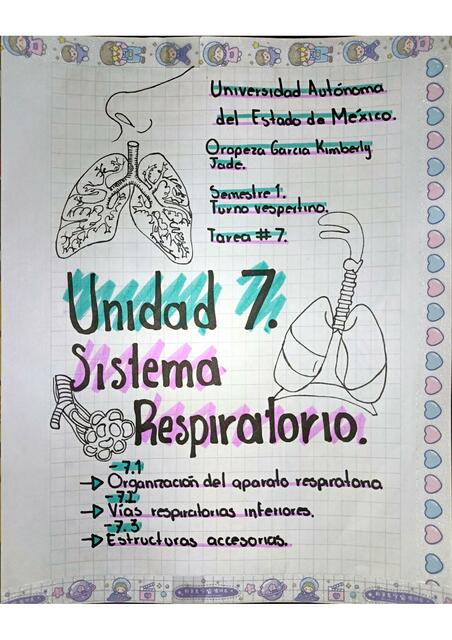 Universidad Autónoma
del Estado de México.
Oropeza Garcia Kimberly
Jade.
Semestre 1.
Turno vespertino.
Tarea # 7.
Unidad 7.
Sistema
Respiratorio.
-7.1
Organización del aparato respiratorio
-7.2
Vías respiratorias inferiores.
-7.3
Estructuras accesorias.